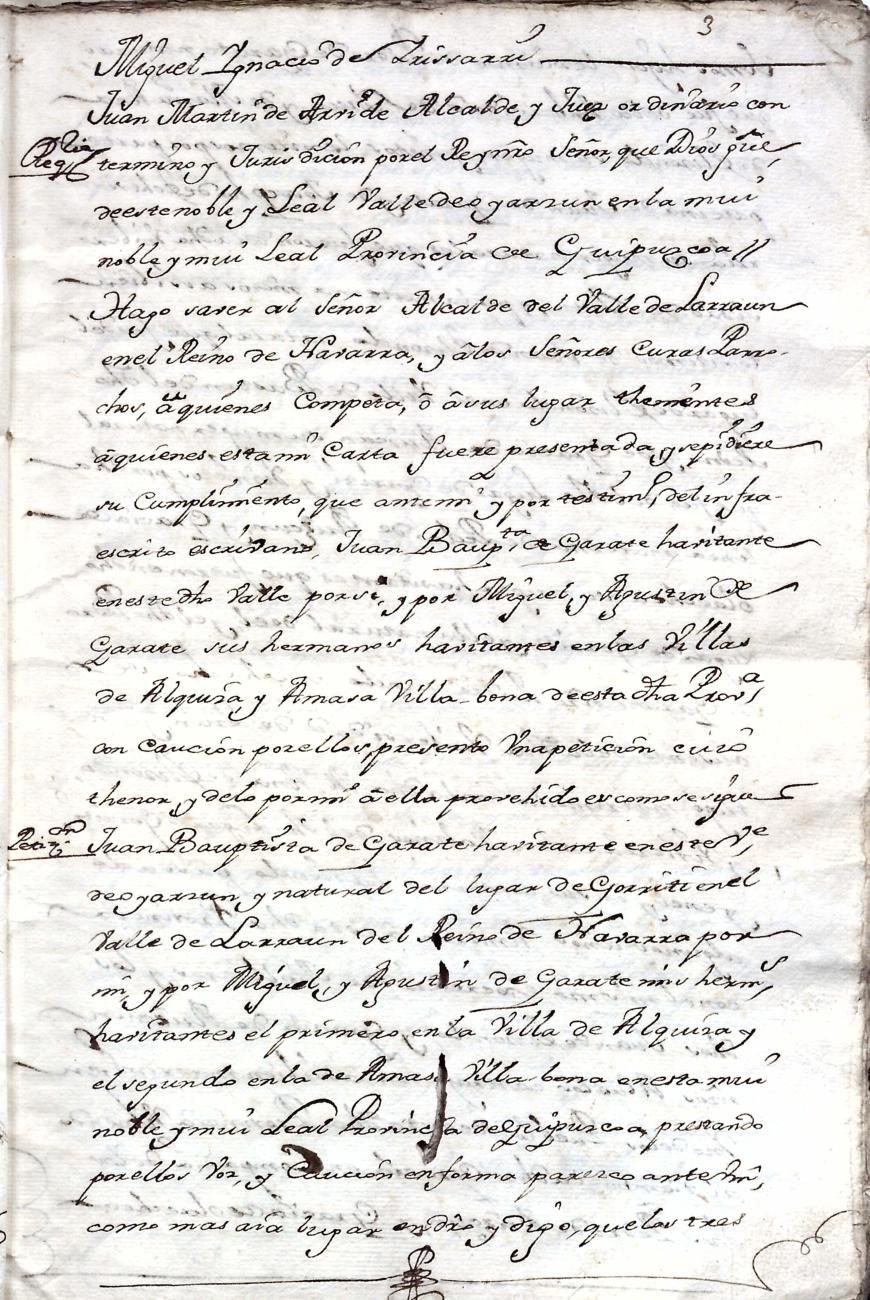 3
Miguel Ignacio de Irissarri
Juan Martin de Arride Alcalde, y Juez ordinario con
Reqria
termino y Jurisdicion por el Rey nro Señor, que Dios gũe,
de este noble y Leal Valle de oyarzun en la mui
noble y mui Leal Provincia de Guipuzcoa //
Hago saver al Señor Alcalde del Valle de Larraun
en el Reino de Navarra, y a los Señores Curas Parro-
chos, a quienes Competa, ô â sus lugar thenientes
a quienes esta mi Carta fuere presentada, y se pidiere
su Cumplimento, que ante mi y por testimo, del infra-
escrito escrivano, Juan Baupta, de Garate havitante
en este dho Valle por si, y por Miguel, y Agustin de
Garate sus hermanos havitantes en las Villas
de Alquiza, y Amasa Villa-bona de esta dha Prova,
con Caucion por ellos, presento Una peticion cuio
thenor, y de lo por mi a ella provehido es como se sigue
Petizon
Juan Bauptista de Garate havitante en este Ve,
de oyarzun, y natural del lugar de Gorriti en el
Valle de Larraun del Reino de Navarra por
mi, y por Miguel, y Agustin de Garate mis herms,
havitantes el primero en la Villa de Alquiza y
el segundo en la de Amasa Villa-bona en esta mui
noble y mui Leal Provincia de Guipuzcoa, prestando
por ellos Voz, y Caucion en forma parezco ante Vm,
como mas aia lugar en dro y digo, que los tres